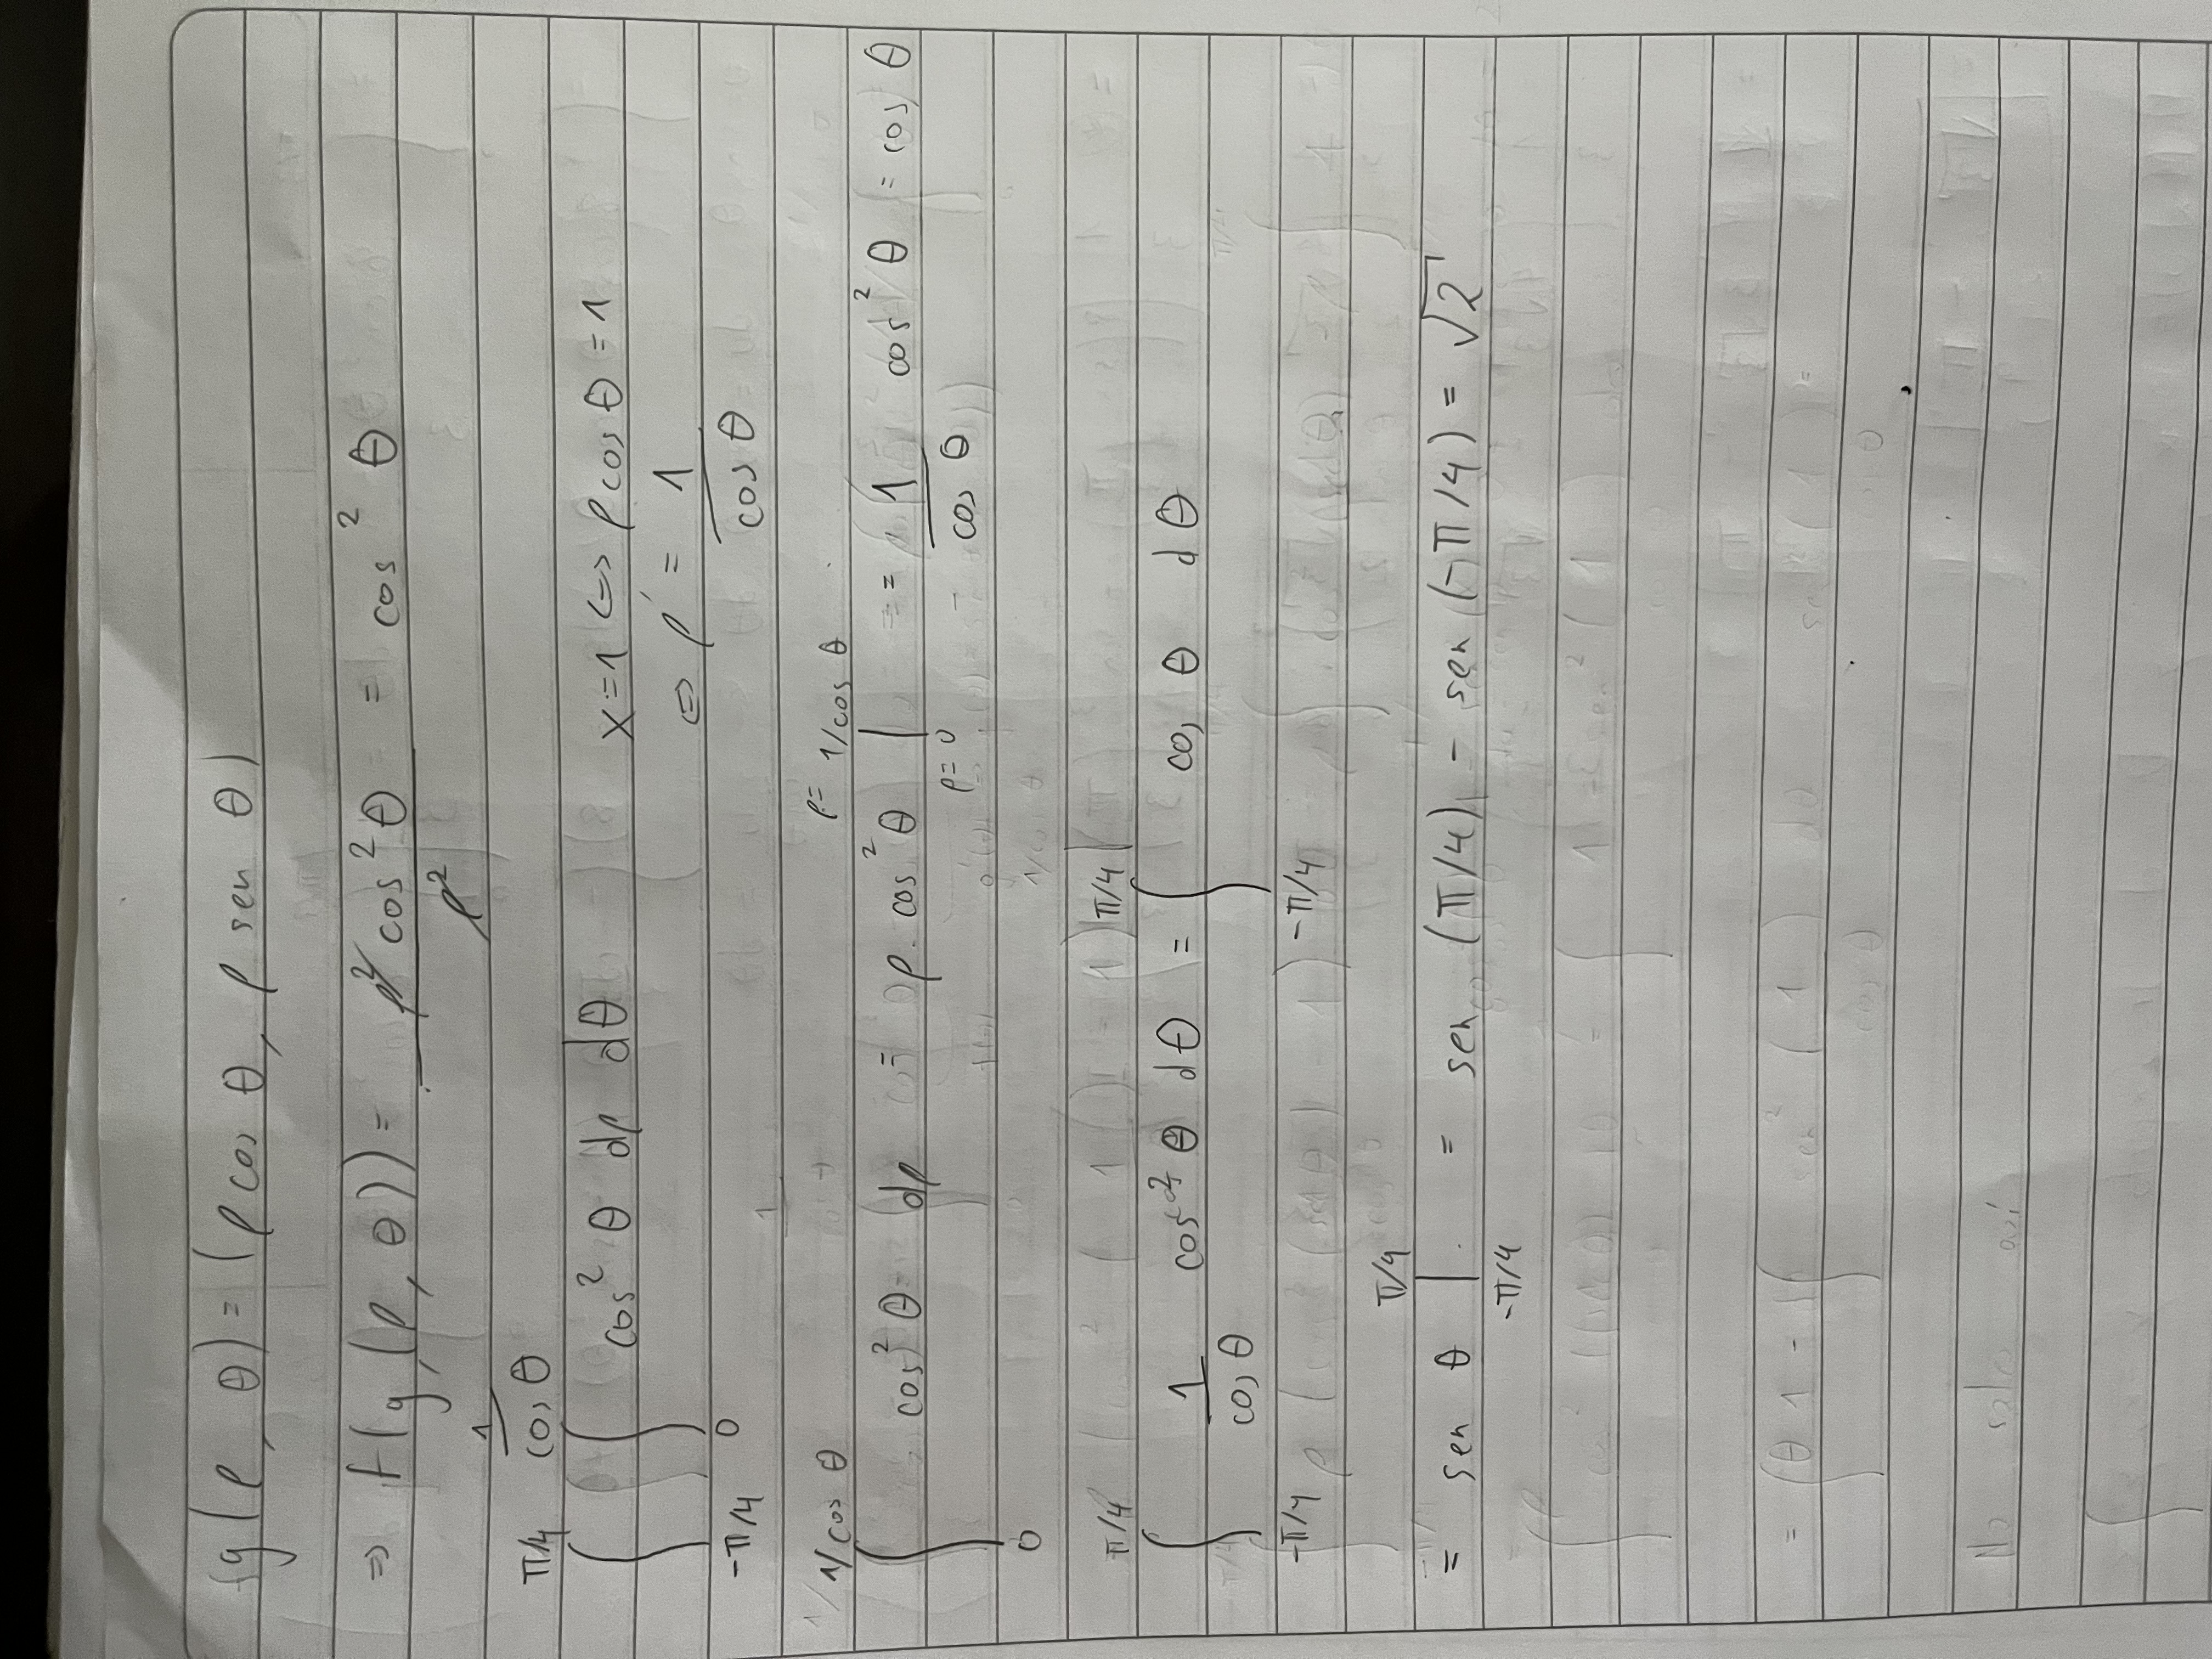 g(ρ, θ) = (ρ cos θ, ρ sen θ)
⇒ f(g(ρ, θ)) = ρ² cos² θ / ρ² = cos² θ
∫_{-π/4}^{π/4} ∫_0^{1/cos θ} cos² θ dρ dθ x=1 ⇔ ρ cos θ = 1
⇔ ρ = 1/cos θ
∫_0^{1/cos θ} cos² θ dρ = ρ. cos² θ |_{ρ=0}^{ρ=1/cos θ} = = 1/cos θ cos² θ = cos θ
∫_{-π/4}^{π/4} 1/cos θ cos² θ dθ = ∫_{-π/4}^{π/4} cos θ dθ
= sen θ |_{-π/4}^{π/4} = sen (π/4) - sen (-π/4) = √2
No sale así